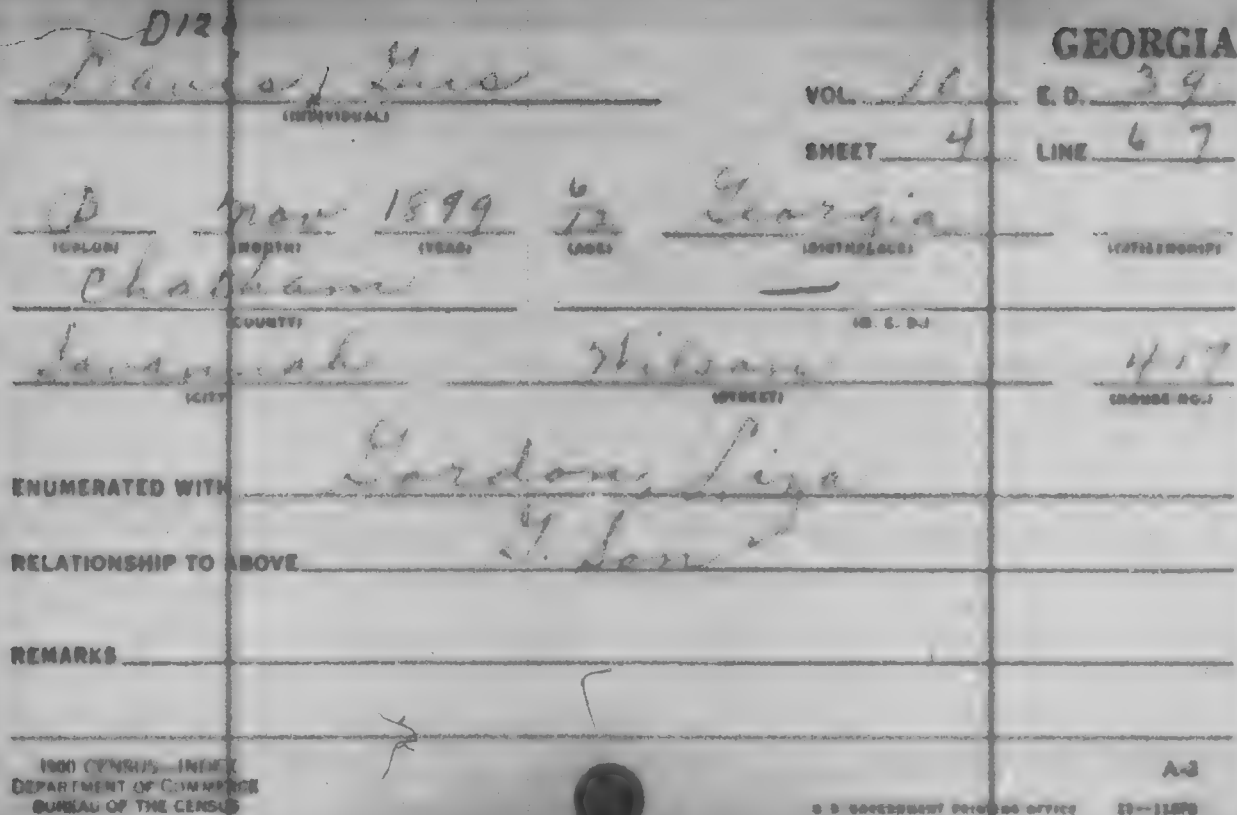 D12
GEORGIA
Gus
(INDIVIDUAL)
VOL. 10 E. D. 39
SHEET 4 LINE 67
B Nov 1899 6/12 Georgia
(COLOR) (MONTH) (YEAR) (AGE) (BIRTHPLACE) (CITIZENSHIP)
Chatham —
(COUNTY) (M. C. D.)
Savannah
(CITY) (STREET) (HOUSE NO.)
ENUMERATED WITH Gordon, Liza
RELATIONSHIP TO ABOVE G. Son
REMARKS
1900 CENSUS—INDEX
DEPARTMENT OF COMMERCE
BUREAU OF THE CENSUS
A-3
U S GOVERNMENT PRINTING OFFICE